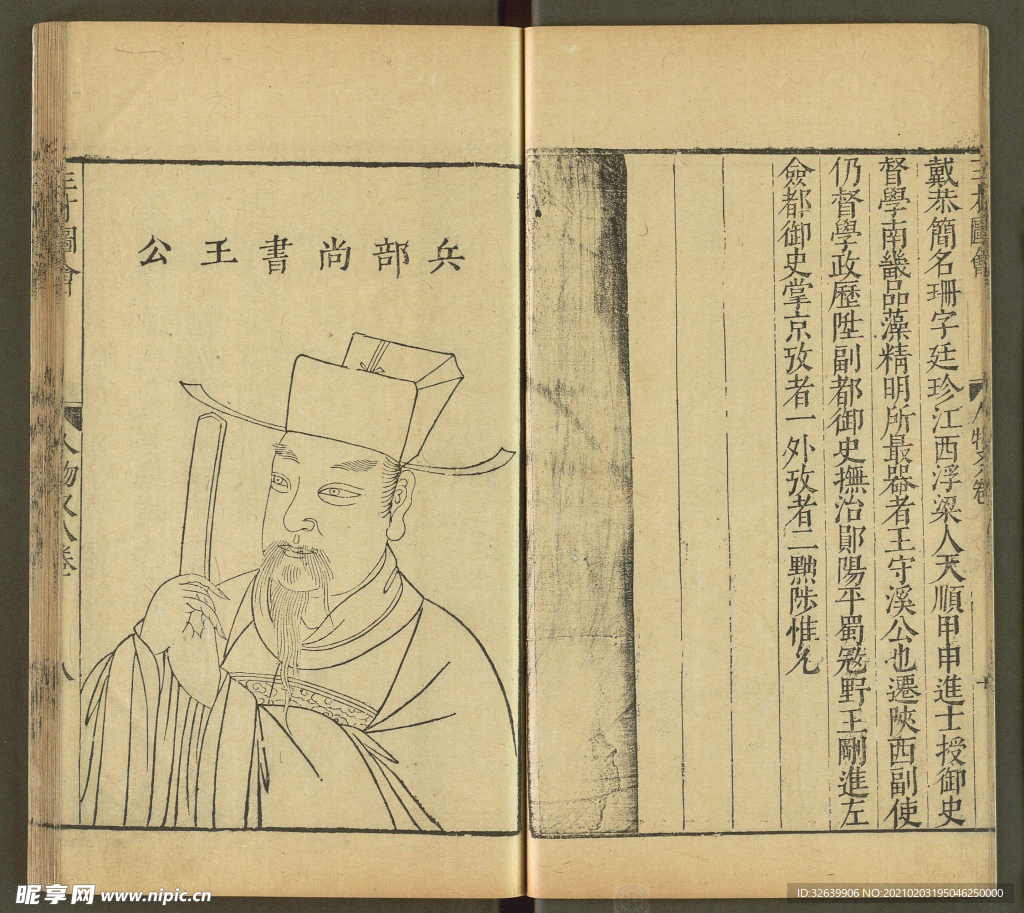 三才圖會
人物又八卷
戴恭簡名珊字廷珍江西浮梁人天順甲申進士授御史
督學南畿品藻精明所最器者王守溪公也遷陝西副使
仍督學政歷陞副都御史撫治鄖陽平蜀寇野王剛進左
僉都御史掌京攷者一外攷者二黜陟惟允
兵部尚書王公
圖會
人物又八卷
八
昵享网 www.nipic.cn
ID:32639906 NO:20210203195046250000